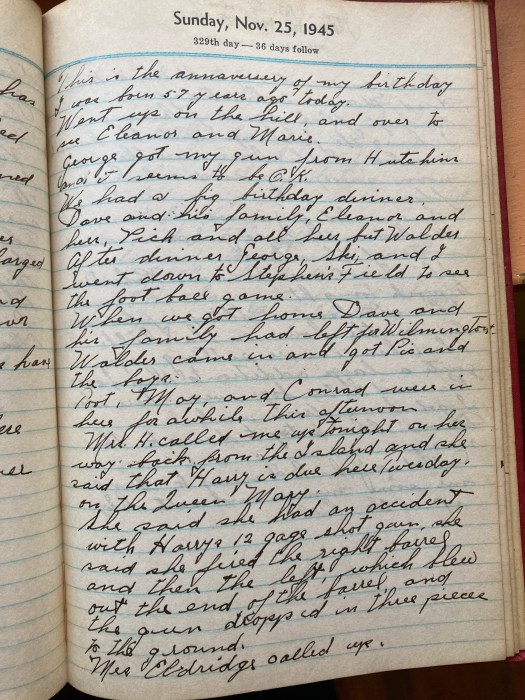 Sunday, Nov. 25, 1945
329th day — 36 days follow
This is the annaversery of my birthday
I was born 57 years ago today.
Went up on the hill, and over to
see Eleanor and Marie.
George got my gun from Hutchins
and it seems to be O.K.
We had a big birthday dinner.
Dave and his family, Eleanor and
hers, Pick and all hers but Walder
After dinner George, Ski, and I
went down to Stephen's Field to see
the foot ball game.
When we got home Dave and
his family had left for Wilmington.
Walder came in and got Pic and
the boys.
Poot, May, and Conrad were in
here for awhile this afternoon
Mrs. H. called me up tonight on her
way back from the Island and she
said that Harry is due here Tuesday.
on the Queen Mary.
She said she had an accident
with Harrys 12 gage shot gun, she
said she fired the right barrel
and then the left, which blew
out the end of the barrel and
the gun dropped in three pieces
to the ground.
Mrs Eldridge called up.
has
ned
larged
nd
han